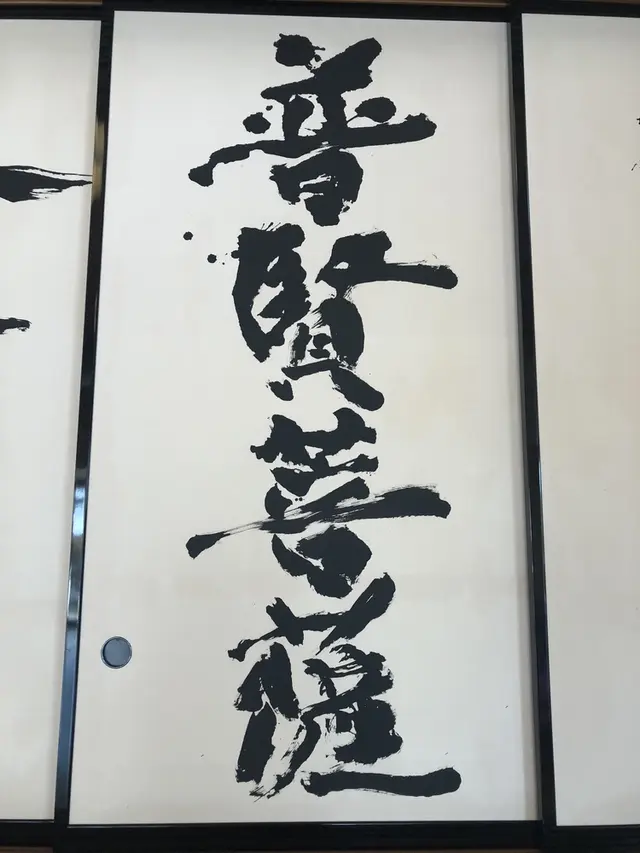 普賢菩薩